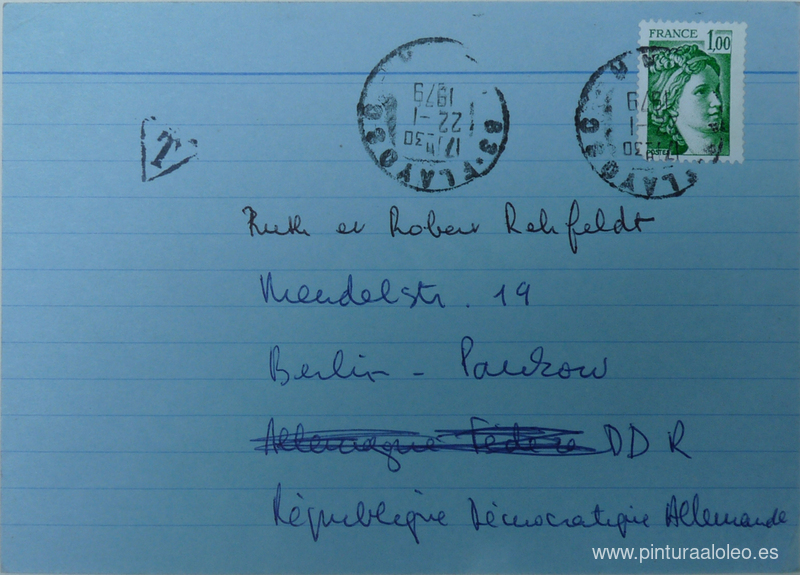 FRANCE 1,00
83 FLAYOSC
17 H 30
22 - 1
1979
83 FLAYOSC
17 H 30
1979
T
Ruth et Robert Rehfeldt
Mendelstr. 19
Berlin - Pankow
Allemagne Fédéra DDR
République Démocratique Allemande
www.pinturaaloleo.es